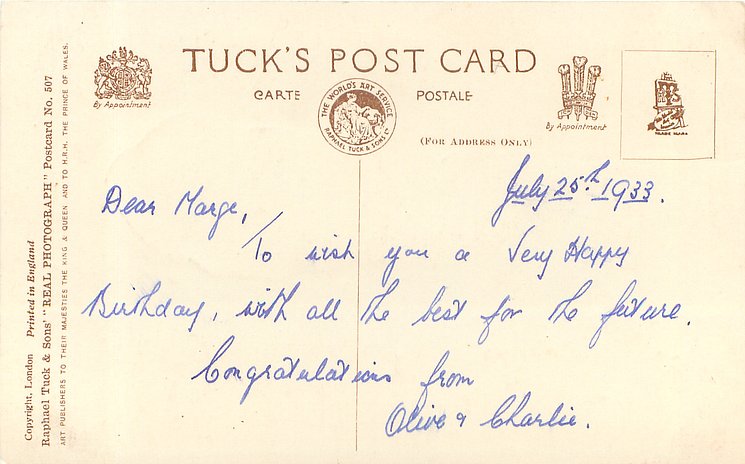 TUCK'S POST CARD
CARTE POSTALE
By Appointment
THE WORLD'S ART SERVICE
RAPHAEL TUCK & SONS LD
By Appointment
TRADE MARK
(FOR ADDRESS ONLY)
July 25th 1933.
Dear Marge,
To wish you a Very Happy
Birthday, with all the best for the future.
Congratulations from
Olive & Charlie.
Copyright, London Printed in England
Raphael Tuck & Sons' "REAL PHOTOGRAPH" Postcard No. 507
ART PUBLISHERS TO THEIR MAJESTIES THE KING & QUEEN AND TO H.R.H. THE PRINCE OF WALES.